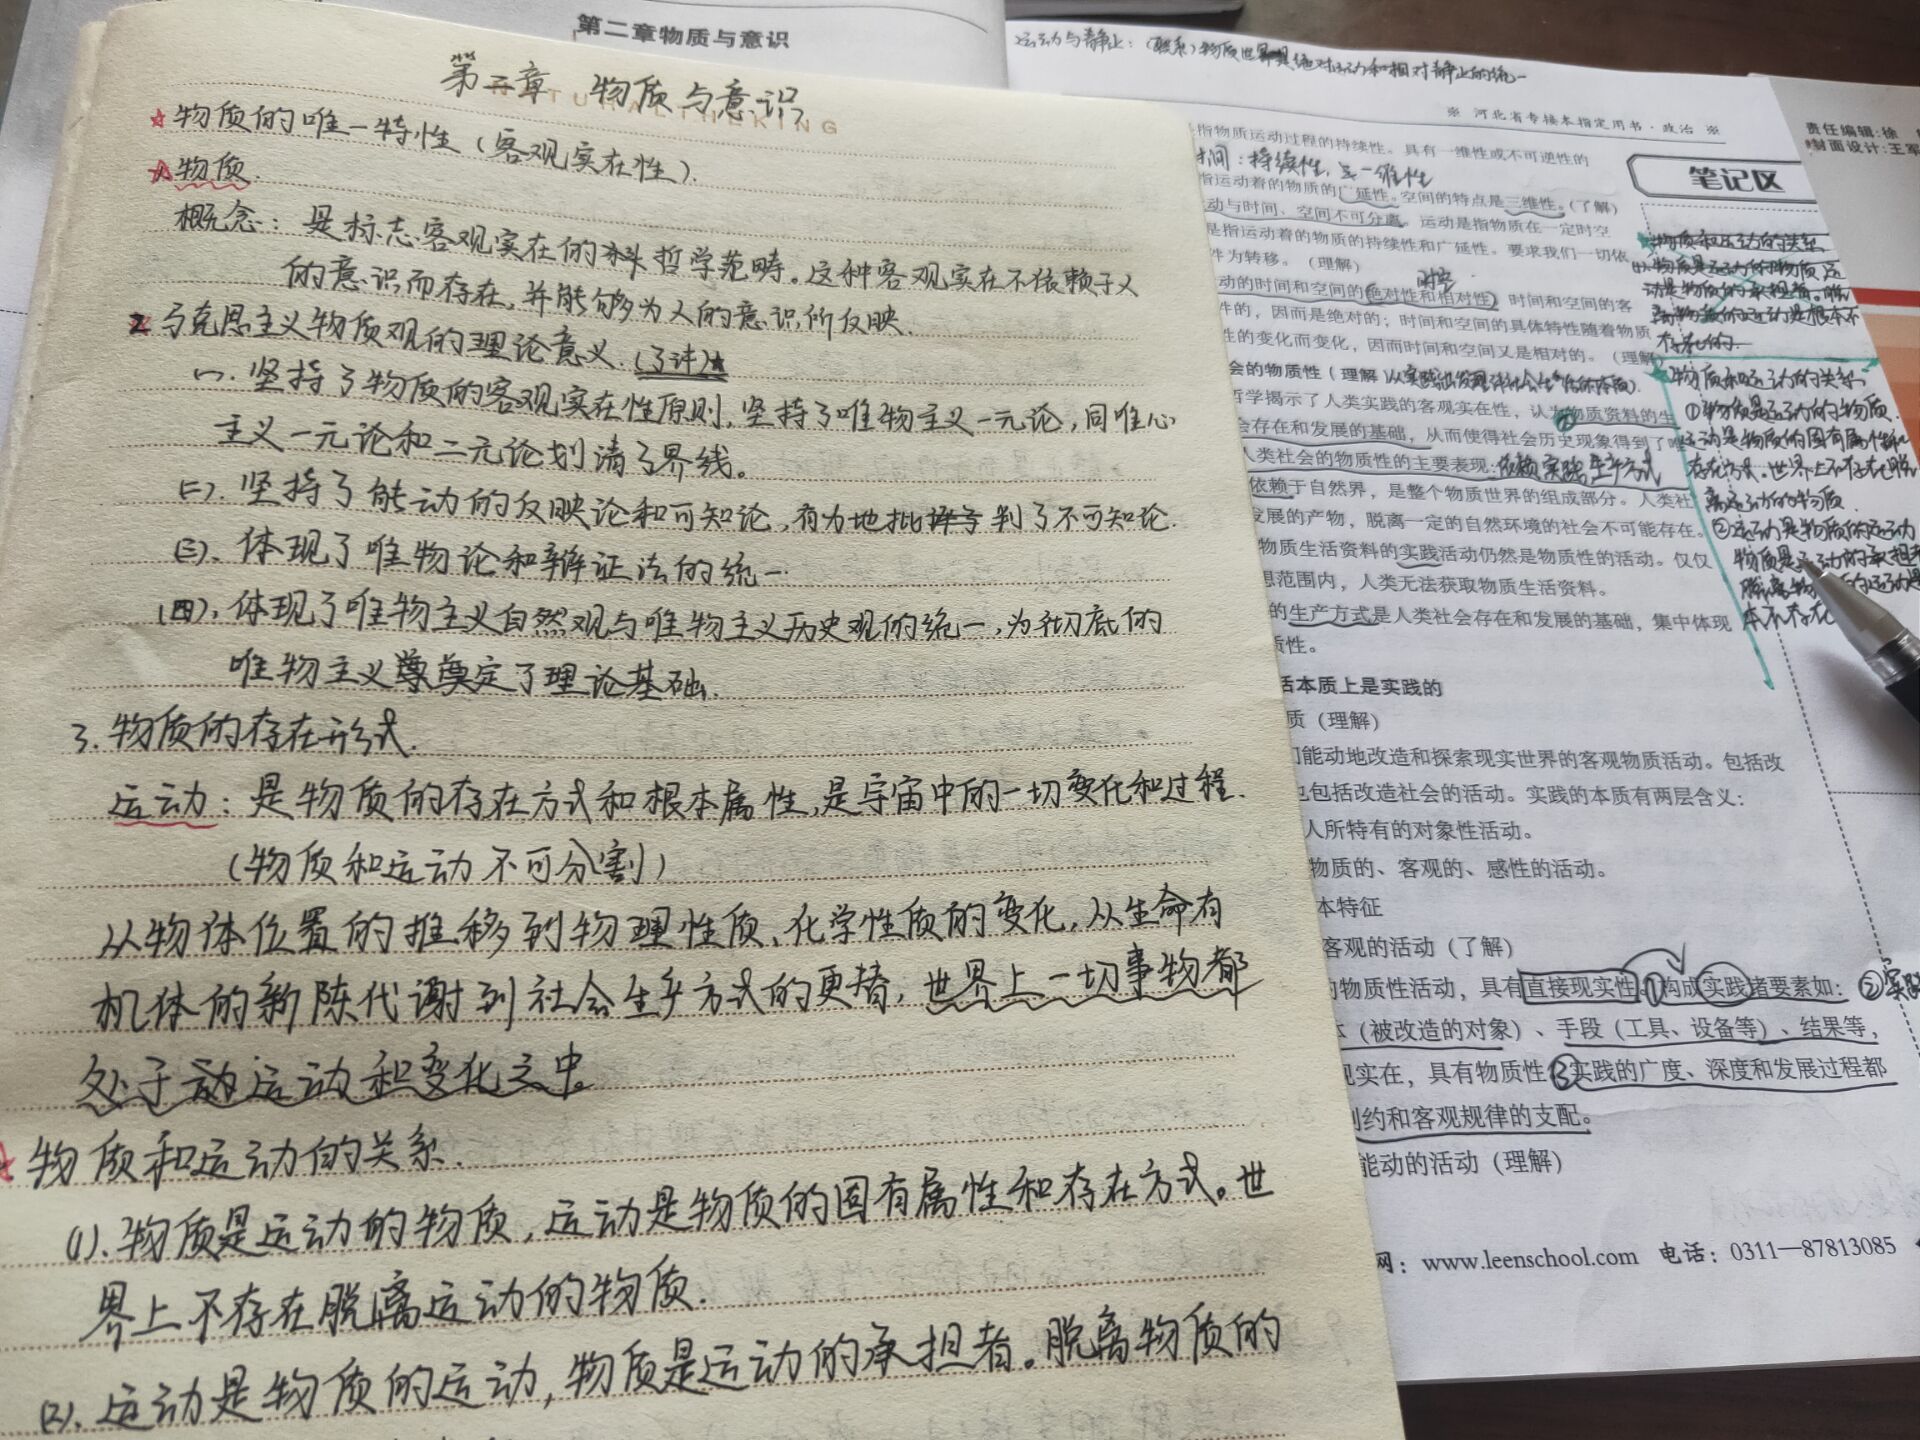 第二章物质与意识
第二章 物质与意识
NATURALTHEKING
☆物质的唯一特性(客观实在性).
1.物质.
概念:是标志客观实在的哲学范畴。这种客观实在不依赖于人
的意识而存在,并能够为人的意识所反映.
2.马克思主义物质观的理论意义.(了解)★
(一).坚持了物质的客观实在性原则,坚持了唯物主义一元论,同唯心
主义一元论和二元论划清了界线。
(二).坚持了能动的反映论和可知论,有力地批判了不可知论.
(三).体现了唯物论和辩证法的统一.
(四).体现了唯物主义自然观与唯物主义历史观的统一,为彻底的
唯物主义奠定了理论基础.
3.物质的存在形式.
运动:是物质的存在方式和根本属性,是宇宙中的一切变化和过程.
(物质和运动不可分割)
从物体位置的推移到物理性质、化学性质的变化,从生命有
机体的新陈代谢到社会生产方式的更替,世界上一切事物都
处于运动和变化之中。
☆物质和运动的关系.
(1).物质是运动的物质,运动是物质的固有属性和存在方式。世
界上不存在脱离运动的物质.
(2).运动是物质的运动,物质是运动的承担者。脱离物质的
运动与静止:(联系)物质世界是绝对运动和相对静止的统一
※ 河北省专接本指定用书·政治 ※
指物质运动过程的持续性。具有一维性或不可逆性的
时间:持续性,是一维性
指运动着的物质的广延性。空间的特点是三维性。(了解)
动与时间、空间不可分离。运动是指物质在一定时空
是指运动着的物质的持续性和广延性。要求我们一切依
件为转移。(理解)
时空
动的时间和空间的绝对性和相对性 时间和空间的客
件的,因而是绝对的;时间和空间的具体特性随着物质
性的变化而变化,因而时间和空间又是相对的。(理解)
会的物质性(理解
哲学揭示了人类实践的客观实在性,认为物质资料的生
会存在和发展的基础,从而使得社会历史现象得到了唯
人类社会的物质性的主要表现:依赖 实践 生产方式
依赖于自然界,是整个物质世界的组成部分。人类社
发展的产物,脱离一定的自然环境的社会不可能存在。
物质生活资料的实践活动仍然是物质性的活动。仅仅
想范围内,人类无法获取物质生活资料。
的生产方式是人类社会存在和发展的基础,集中体现
质性。
活本质上是实践的
质(理解)
们能动地改造和探索现实世界的客观物质活动。包括改
也包括改造社会的活动。实践的本质有两层含义:
人所特有的对象性活动。
物质的、客观的、感性的活动。
本特征
客观的活动(了解)
的物质性活动,具有直接现实性 ①构成实践诸要素如: ②实践
体(被改造的对象)、手段(工具、设备等)、结果等,
现实在,具有物质性 ③实践的广度、深度和发展过程都
制约和客观规律的支配。
能动的活动(理解)
网:www.leenschool.com 电话:0311—87813085
笔记区
物质和运动的关系
存在的.
物质和运动的关系
①物质是运动的物质.
运动是物质的固有属性和
存在方式.世界上不存在脱
离运动的物质.
②运动是物质的运动
物质是运动的承担者
责任编辑:徐
封面设计:王军